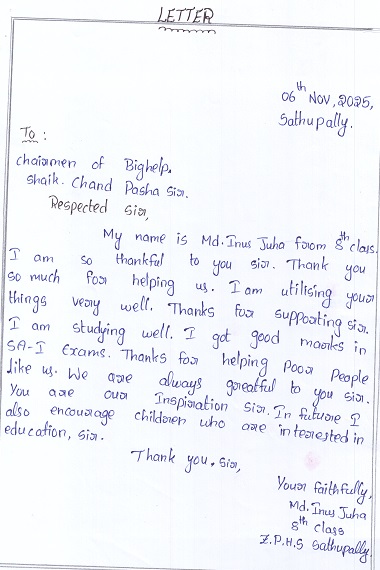 LETTER
06th NOV, 2025,
Sathupally.
To :
chairmen of Bighelp.
Shaik. Chand Pasha Sir.
Respected Sir,
My name is Md. Inus Juha from 8th class.
I am so thankful to you sir. Thank you
so much for helping us. I am utilising your
things very well. Thanks for supporting sir.
I am studying well. I got good marks in
SA-I Exams. Thanks for helping poor people
like us. We are always greatful to you sir.
You are our Inspiration sir. In future I
also encourage children who are interested in
education, sir.
Thank you. Sir,
Your faithfully,
Md. Inus Juha
8th class
Z.P.H.S Sathupally.